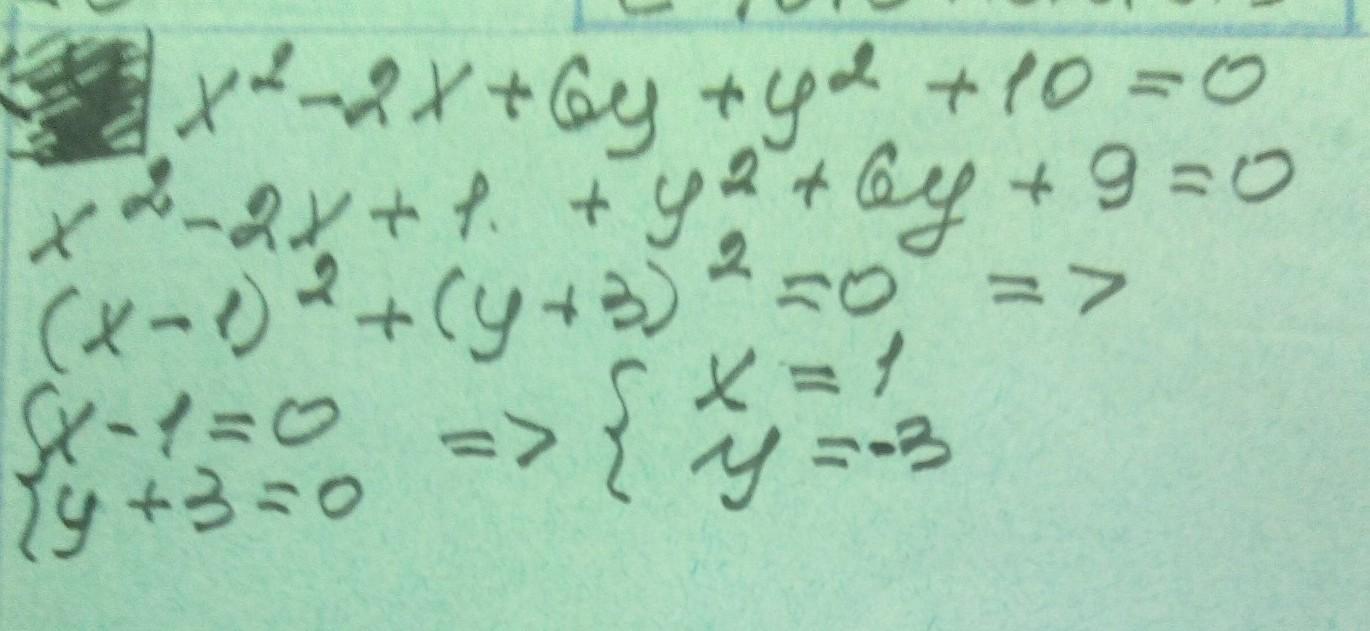 x² - 2x + 6y + y² + 10 = 0
x² - 2x + 1. + y² + 6y + 9 = 0
(x - 1)² + (y + 3)² = 0 =>
{x - 1 = 0 => { x = 1
{y + 3 = 0 y = -3